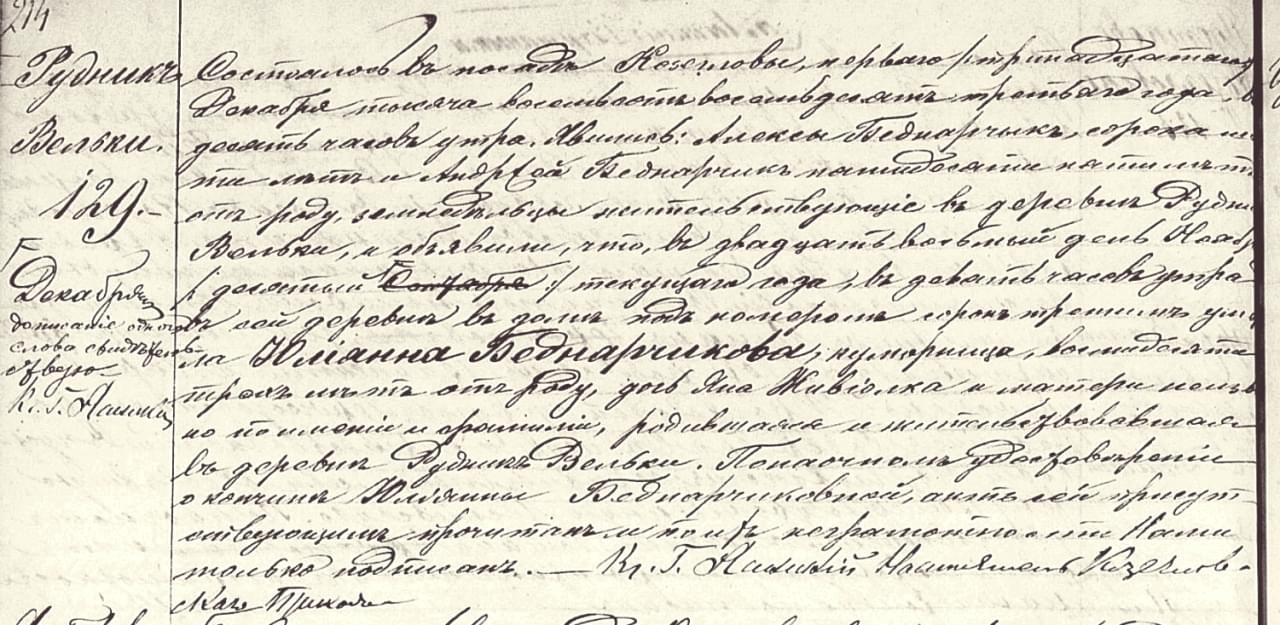 214
Рудникъ
Вельки.
129.
Декабря
дописаніе одного
слова свидѣтель-
ствую
Кс. Г.
Состоялось въ посадѣ Козегловы, перваго /:тринадцатаго
Декабря тысяча восемьсотъ восемьдесятъ третьяго года, въ
десять часовъ утра. Явились: Алексы Беднарчыкъ, сорока пя
ти лѣтъ и Андрей Беднарчикъ пятидесяти пяти лѣтъ
отъ роду, земледѣльцы жительствующіе въ деревнѣ Рудникъ
Вельки, и объявили, что, въ двадцать восьмый день Ноября
/: десятый Сентября :/ текущаго года, въ девять часовъ утра
въ сей деревнѣ въ домѣ подъ номеромъ сорокъ третимъ умер
ла Юліанна Беднарчикова, кумарница, восмидесяти
трехъ лѣтъ отъ роду, дочь Яна и матери неизв
по именіи и фамиліи, родившаяся и жительствовавшая
въ деревнѣ Рудникъ Вельки. По наочномъ удостовѣреніи
о кончинѣ Юліянны Беднарчиковной, актъ сей присут
ствующимъ прочитанъ и по ихъ неграмотности Нами
только подписанъ. — Кс. Г. Настоятель Козеглов-
скаго Прихода